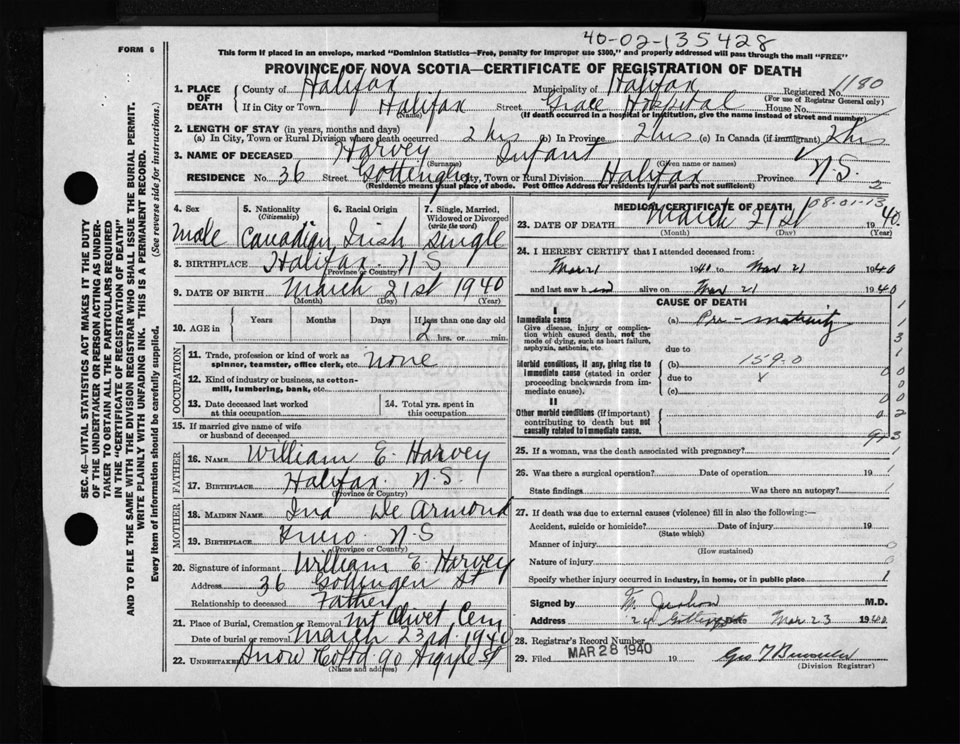 40-02-135428
FORM 6
This form if placed in an envelope, marked "Dominion Statistics—Free, penalty for improper use $300," and properly addressed will pass through the mail "FREE"
PROVINCE OF NOVA SCOTIA—CERTIFICATE OF REGISTRATION OF DEATH
1. PLACE OF DEATH County of Halifax Municipality of Halifax Registered No. 1180
(For use of Registrar General only)
If in City or Town Halifax Street Grace Hospital House No.
(Name) (If death occurred in a hospital or institution, give the name instead of street and number)
2. LENGTH OF STAY (in years, months and days)
(a) In City, Town or Rural Division where death occurred 2 hrs (b) In Province 2 hrs (c) In Canada (if immigrant) 2 hrs
3. NAME OF DECEASED Harvey Infant
(Surname) (Given name or names)
RESIDENCE No. 36 Street Gottingen City, Town or Rural Division Halifax Province N.S.
(Residence means usual place of abode. Post Office Address for residents in rural parts not sufficient) 2
4. Sex 5. Nationality (Citizenship) 6. Racial Origin 7. Single, Married, Widowed or Divorced (write the word)
Male Canadian Irish Single
8. BIRTHPLACE Halifax N S
(Province or Country)
9. DATE OF BIRTH March 21st 1940
(Month) (Day) (Year)
10. AGE in Years Months Days If less than one day old
2 hrs. or min.
OCCUPATION
11. Trade, profession or kind of work as spinner, teamster, office clerk, etc. none
12. Kind of industry or business, as cotton-mill, lumbering, bank, etc.
13. Date deceased last worked at this occupation 14. Total yrs. spent in this occupation
15. If married give name of wife or husband of deceased
FATHER
16. Name William E. Harvey
17. Birthplace Halifax. N.S.
(Province or Country)
MOTHER
18. Maiden Name Ina De Armond
19. Birthplace Truro N.S
(Province or Country)
20. Signature of informant William E. Harvey
Address 36 Gottingen St
Relationship to deceased Father
21. Place of Burial, Cremation or Removal Mt Olivet Cem
Date of burial or removal March 23rd. 1940
22. Undertaker Snow Co Ltd 90 Argyle St
(Name and address)
MEDICAL CERTIFICATE OF DEATH 08-01-13
23. DATE OF DEATH March 21st 1940.
(Month) (Day) (Year)
24. I HEREBY CERTIFY that I attended deceased from:
Mar 21 1940 to Mar 21 1940
and last saw him alive on Mar 21 1940
CAUSE OF DEATH
I
Immediate cause (a) Pre-maturity
Give disease, injury or complication which caused death, not the mode of dying, such as heart failure, asphyxia, asthenia, etc.
due to
Morbid conditions, if any, giving rise to immediate cause (stated in order proceeding backwards from immediate cause).
(b) 159.0
due to
(c)
II
Other morbid conditions (if important) contributing to death but not causally related to immediate cause.
25. If a woman, was the death associated with pregnancy?
26. Was there a surgical operation? Date of operation 19
State findings Was there an autopsy?
27. If death was due to external causes (violence) fill in also the following:—
Accident, suicide or homicide? Date of injury 19
(State which)
Manner of injury
(How sustained)
Nature of injury
Specify whether injury occurred in industry, in home, or in public place
Signed by M.D.
Address 24 Gottingen Date Mar 23 1940
28. Registrar's Record Number
MAR 28 1940
29. Filed 19
(Division Registrar)
SEC. 46—VITAL STATISTICS ACT MAKES IT THE DUTY
OF THE UNDERTAKER OR PERSON ACTING AS UNDER-
TAKER TO OBTAIN ALL THE PARTICULARS REQUIRED
IN THE "CERTIFICATE OF REGISTRATION OF DEATH"
AND TO FILE THE SAME WITH THE DIVISION REGISTRAR WHO SHALL ISSUE THE BURIAL PERMIT.
WRITE PLAINLY WITH UNFADING INK. THIS IS A PERMANENT RECORD.
Every item of information should be carefully supplied. (See reverse side for instructions.)